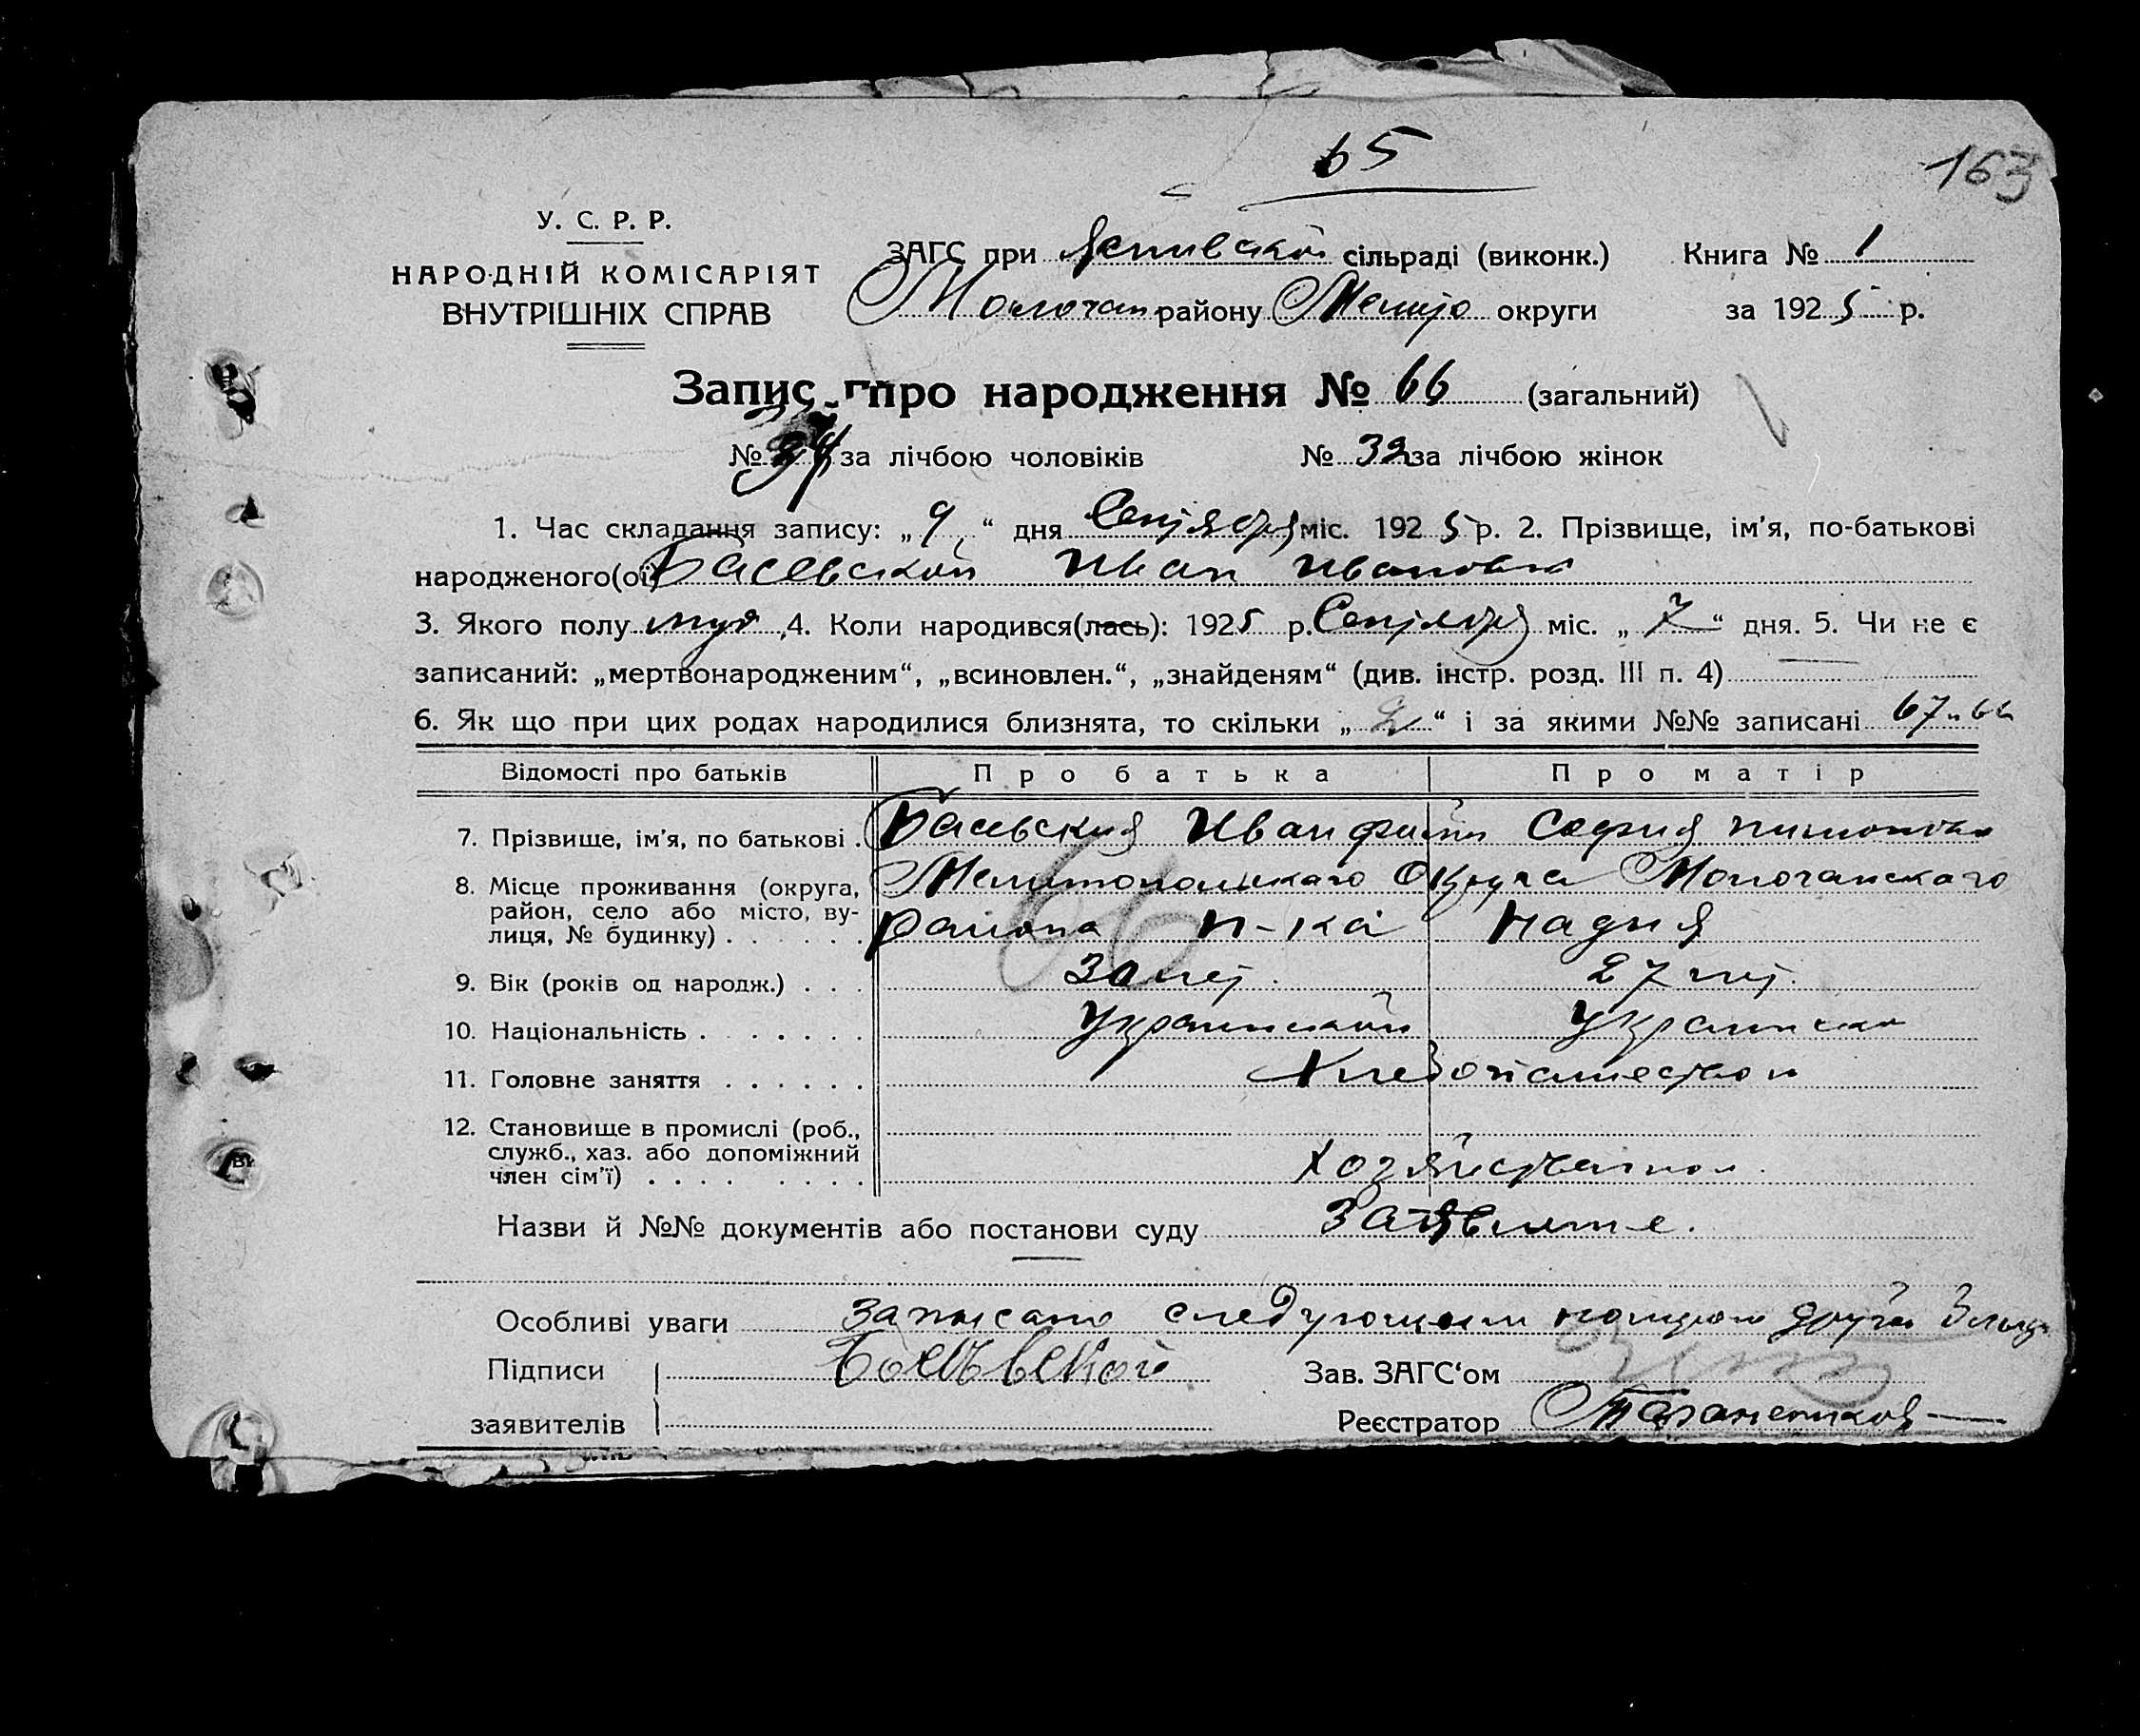 65
163
У. С. Р. Р.
НАРОДНІЙ КОМІСАРІЯТ
ВНУТРІШНІХ СПРАВ
ЗАГС при сільраді (виконк.) Книга № 1
Молочан району Мелито округи за 1925 р.
Запис про народження № 66 (загальний)
№ 34 за лічбою чоловіків № 32 за лічбою жінок
1. Час складання запису: „ 9 “ дня Сентября міс. 1925 р. 2. Прізвище, ім'я, по-батькові
народженого(ої) Басевской Иван Иванович
3. Якого полу муж , 4. Коли народився(лась): 1925 р. Сентября міс. „ 7 “ дня. 5. Чи не є
записаний: „мертвонародженим“, „всиновлен.“, „знайденям“ (див. інстр. розд. III п. 4)
6. Як що при цих родах народилися близнята, то скільки „ 2 “ і за якими №№ записані 67 и 66
Відомості про батьків Про батька Про матір
7. Прізвище, ім'я, по батькові . Басевский Иван София
8. Місце проживання (округа, Мелитопольскаго Округа Молочанскаго
район, село або місто, ву-
лиця, № будинку) . . . . . . района п-ка Надия
66
9. Вік (років од народж.) . . . 30 лет. 27 лет.
10. Національність . . . . . . . Украинской Украинска
11. Головне заняття . . . . . . Хлебопашеством
12. Становище в промислі (роб.,
служб., хаз. або допоміжний
член сім'ї) . . . . . . . . Хозяйственном.
Назви й №№ документів або постанови суду Заявление.
Особливі уваги Записано следующим номером другой
Підписи Басевской Зав. ЗАГС‘ом
заявителів Реєстратор